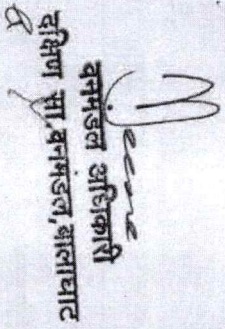 वनमंडल अधिकारी
दक्षिण सा.वनमंडल,बालाघाट